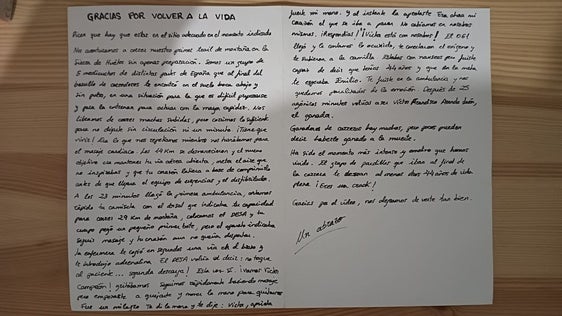 GRACIAS POR VOLVER A LA VIDA
Dicen que hay que estar en el sitio adecuado en el momento indicado
Nos aventuramos a correr nuestro primer trail de montaña en la
Sierra de Huétor sin apenas preparación. Somos un grupo de
5 médicos de distintas partes de España que al final del
batallón de corredores te encontró en el suelo boca abajo y
sin pulso, en una situación para la que es difícil prepararse
y para la ordenar para actuar con la mayor rapidez. Nos
libramos de correr muchas subidas, pero corrimos lo suficiente
para no dejarte sin circulación ni un minuto. ¡Tiene que
vivir! Era lo que nos repetíamos mientras nos turnábamos para
el masaje cardiaco. Los 44 Km se desvanecieron y el nuevo
objetivo era mantener tu vía aérea abierta, meter el aire que
no inspirabas y que tu corazón latiera a base de compresiones
antes de que llegara el equipo de emergencias y el desfibrilador.
A los 23 minutos llegó la primera ambulancia, cortamos
rápido tu camiseta con el dorsal que indicaba tu capacidad
para correr 29 Km de montaña, colocamos el DESA y tu
cuerpo pegó un pequeño primer bote, pero el aparato indicaba
seguir masaje y tu corazón aun no quería despertar.
La enfermera te cogió en segundos una vía en el brazo y
te introdujo adrenalina. El DESA volvió a decir: no toque
al paciente... segunda descarga! ¡¡Vamos Víctor
Campeón! gritábamos. Seguimos rápidamente haciendo masaje
pero empezaste a quejarte y mover la mano para quitarnos
Fue un milagro. Te di la mano y te dije: Victor, aprieta
fuerte mi mano. Y al instante la apretaste. Era ahora mi
corazón el que se iba a parar. No cabíamos en nosotros
mismos. ¡Respondías! ¡¡Victor está con nosotros! El 061
llegó y le contamos lo ocurrido, te conectaron el oxígeno y
te subieron a la camilla. Estabas con nosotros pues fuiste
capaz de decir que tenías 44 años y que en la meta
te esperaba Emilio. Te fuiste en la ambulancia y nos
quedamos paralizados de la emoción. Después de 25
agónicos minutos volvías a ser Víctor
el ganador.
Ganadores de carreras hay muchos, pero pocos pueden
decir haberle ganado a la muerte.
Ha sido el momento más intenso y emotivo que hemos
vivido. El grupo de pardillos que iban al final de
la carrera te desean al menos otros 44 años de vida
plena ¡Eres un crack!
Gracias por el video, nos alegramos de verte tan bien.
Un abrazo